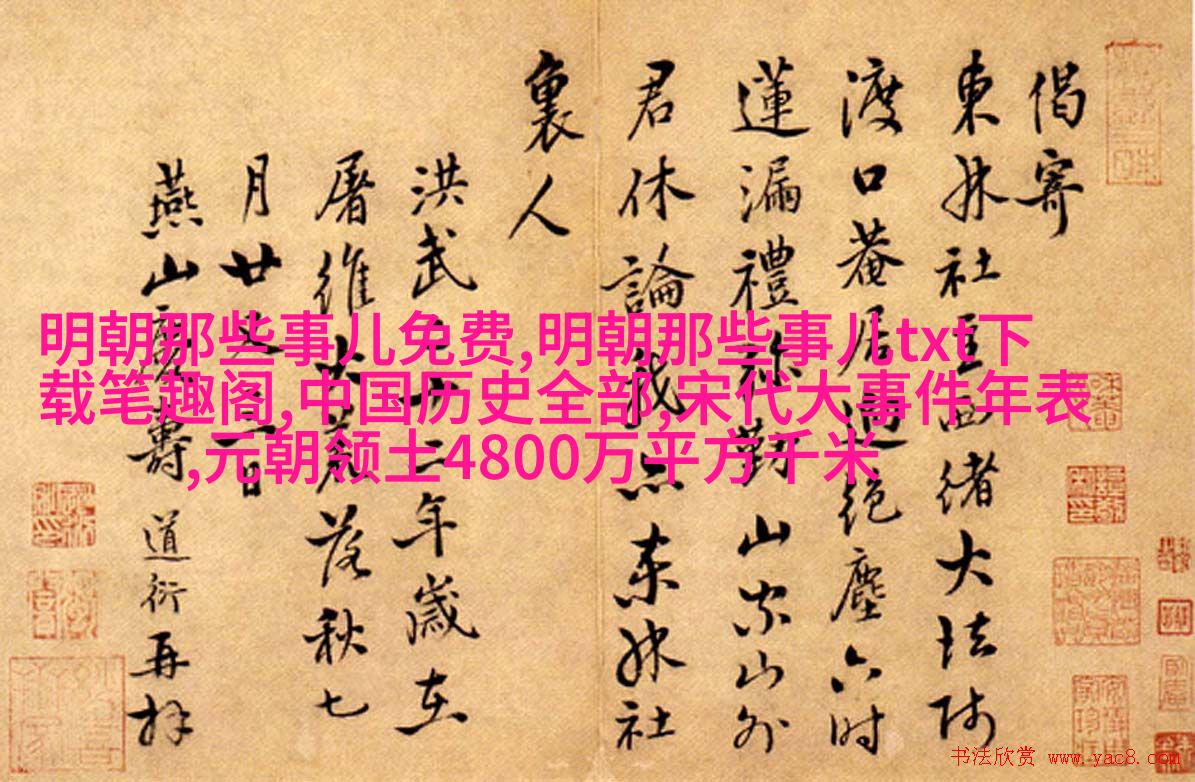 偈寄
東林社主西緒大法師
渡口菴居迥絕塵六時
蓮漏禮勤山家山外
君休論我東林社
裏人
洪武二年歲在
屠維大荒落秋七
月廿日
燕山慶壽道衍再拜
明朝那些事儿免费,明朝那些事儿txt下
载笔趣阁,中国历史全部,宋代大事件年表
,元朝领土4800万平方千米
书法欣赏 www.yac8.com